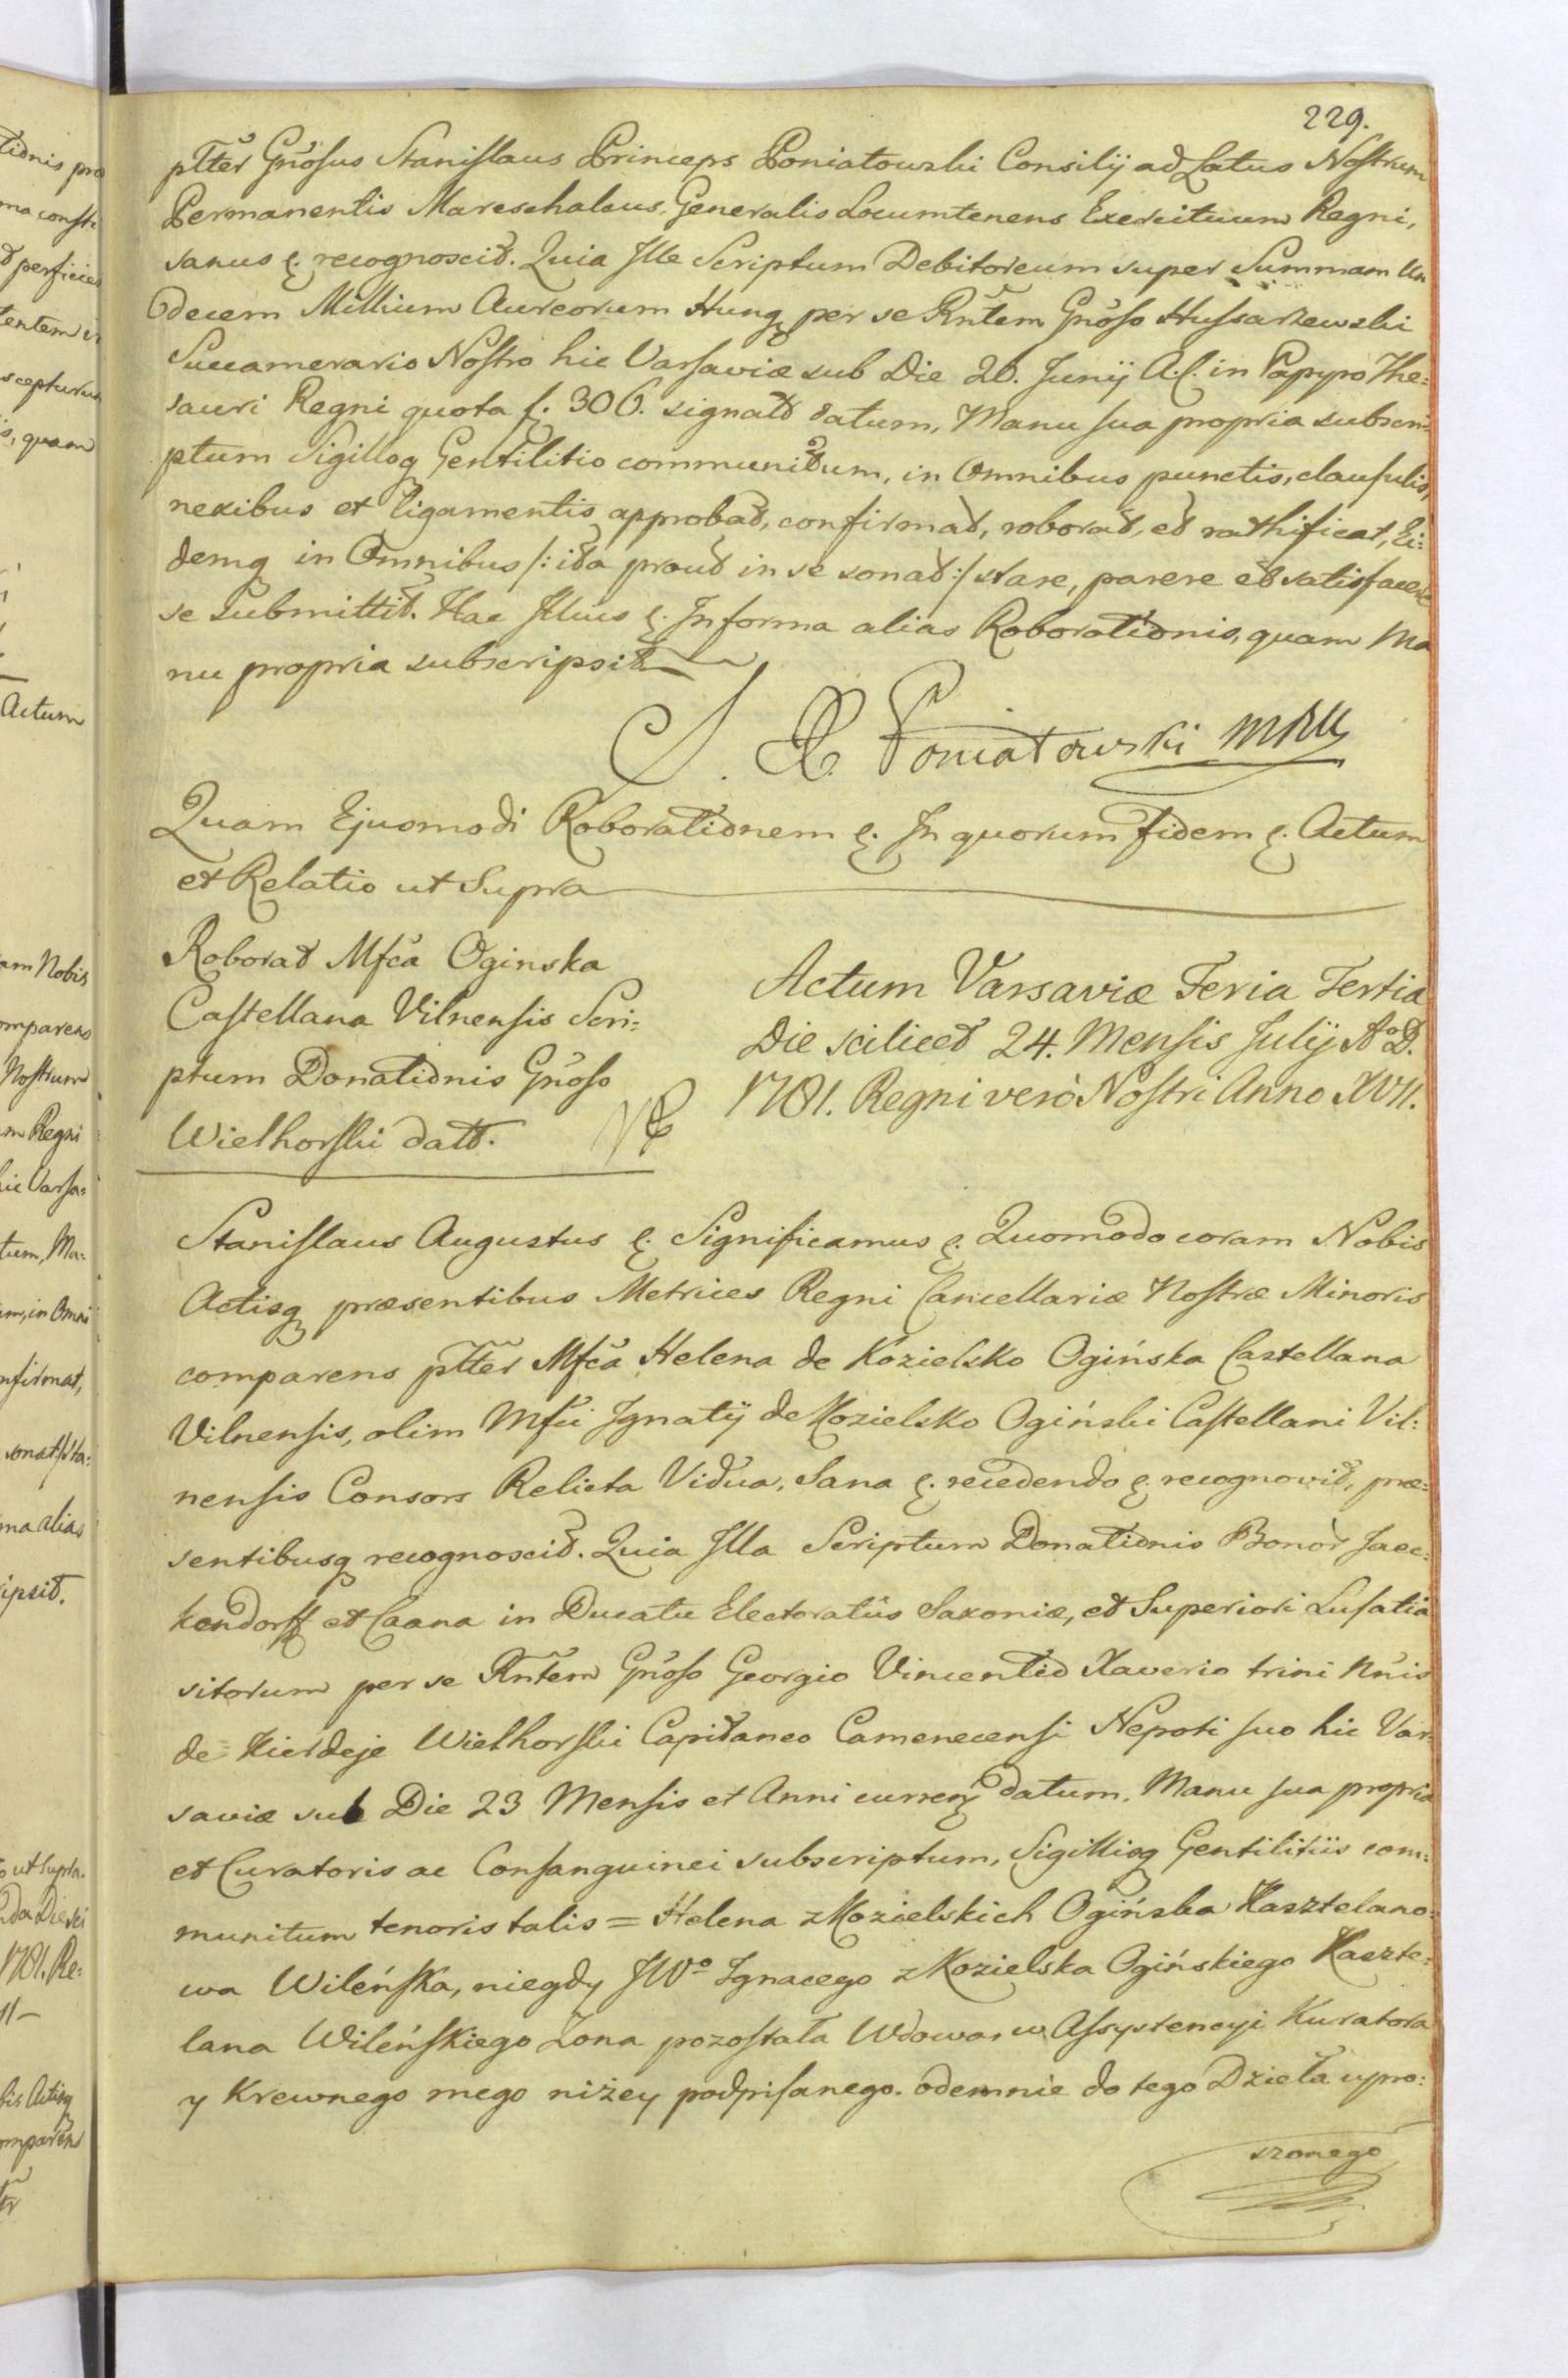 229.
ptter Gnosus Stanislaus Princeps Poniatowski Consilij ad Latus Nostrum
Permanentis Mareschalcus, Generalis Locumtenens Exercituum Regni,
sanus &. recognoscit. Quia Ille Scriptum Debitoreum super Summam Un
decem Millium Aureorum Hung per se Rntem Gnoso Hussarzewski
Succamerario Nostro hic Varsaviæ sub Die 26. Junij A.C. in Papyro The=
sauri Regni quota f. 306. signatt datum, Manu sua propria subscri=
ptum Sigilloq Gentilitio communitum, in Omnibus punctis, clausulis,
nexibus et ligamentis approbat, confirmat, roborat, et rathificat, Ei=
demq in Omnibus /: ita prout in se sonat :/ stare, parere et satisfacere
se submittit. Hac Illius &. Informa alias Roborationis, quam Ma
nu propria subscripsit
S. X. Poniatowski mpp
Quam Ejusmodi Roborationem &. In quorum fidem &. Actum
et Relatio ut Supra
Roborat Mfca Oginska
Castellana Vilnensis Scri=
ptum Donationis Gnoso
Wielhorski datt.
Actum Varsaviæ Feria Tertia
Die scilicet 24. Mensis Julij A°D.
1781. Regni verò Nostri Anno XVII.
Stanislaus Augustus &. Significamus &. Quomodo coram Nobis
Actisq præsentibus Metrices Regni Cancellariæ Nostræ Minoris
comparens ptter Mfca Helena de Kozielsko Ogińska Castellana
Vilnensis, olim Mfci Ignatij de Kozielsko Ogiński Castellani Vil=
nensis Consors Relicta Vidua, Sana &. recedendo &. recognovit, præ=
sentibusq recognoscit. Quia Illa Scriptum Donationis Bonor Jaec=
kendorff et Caana in Ducatu Electoratûs Saxoniæ, et Superiori Lusatia
sitorum per se Rntem Gnoso Georgio Vincentio Xaverio trini Nnis
de Kierdeje Wielhorski Capitaneo Camenecensi Nepoti suo hic Var=
saviæ sub Die 23 Mensis et Anni curren datum, Manu sua propria
et Curatoris ac Consanguinei subscriptum, Sigillisq Gentilitiis com=
munitum tenoris talis = Helena z Kozielskich Ogińska Kasztelano=
wa Wileńska, niegdy JWo Ignacego z Kozielska Ogińskiego Kaszte=
lana Wileńskiego Zona pozostała Wdowa, w Assystencyi Kuratora
y Krewnego mego niżey podpisanego. odemnie do tego Dzieła upro=
szonego